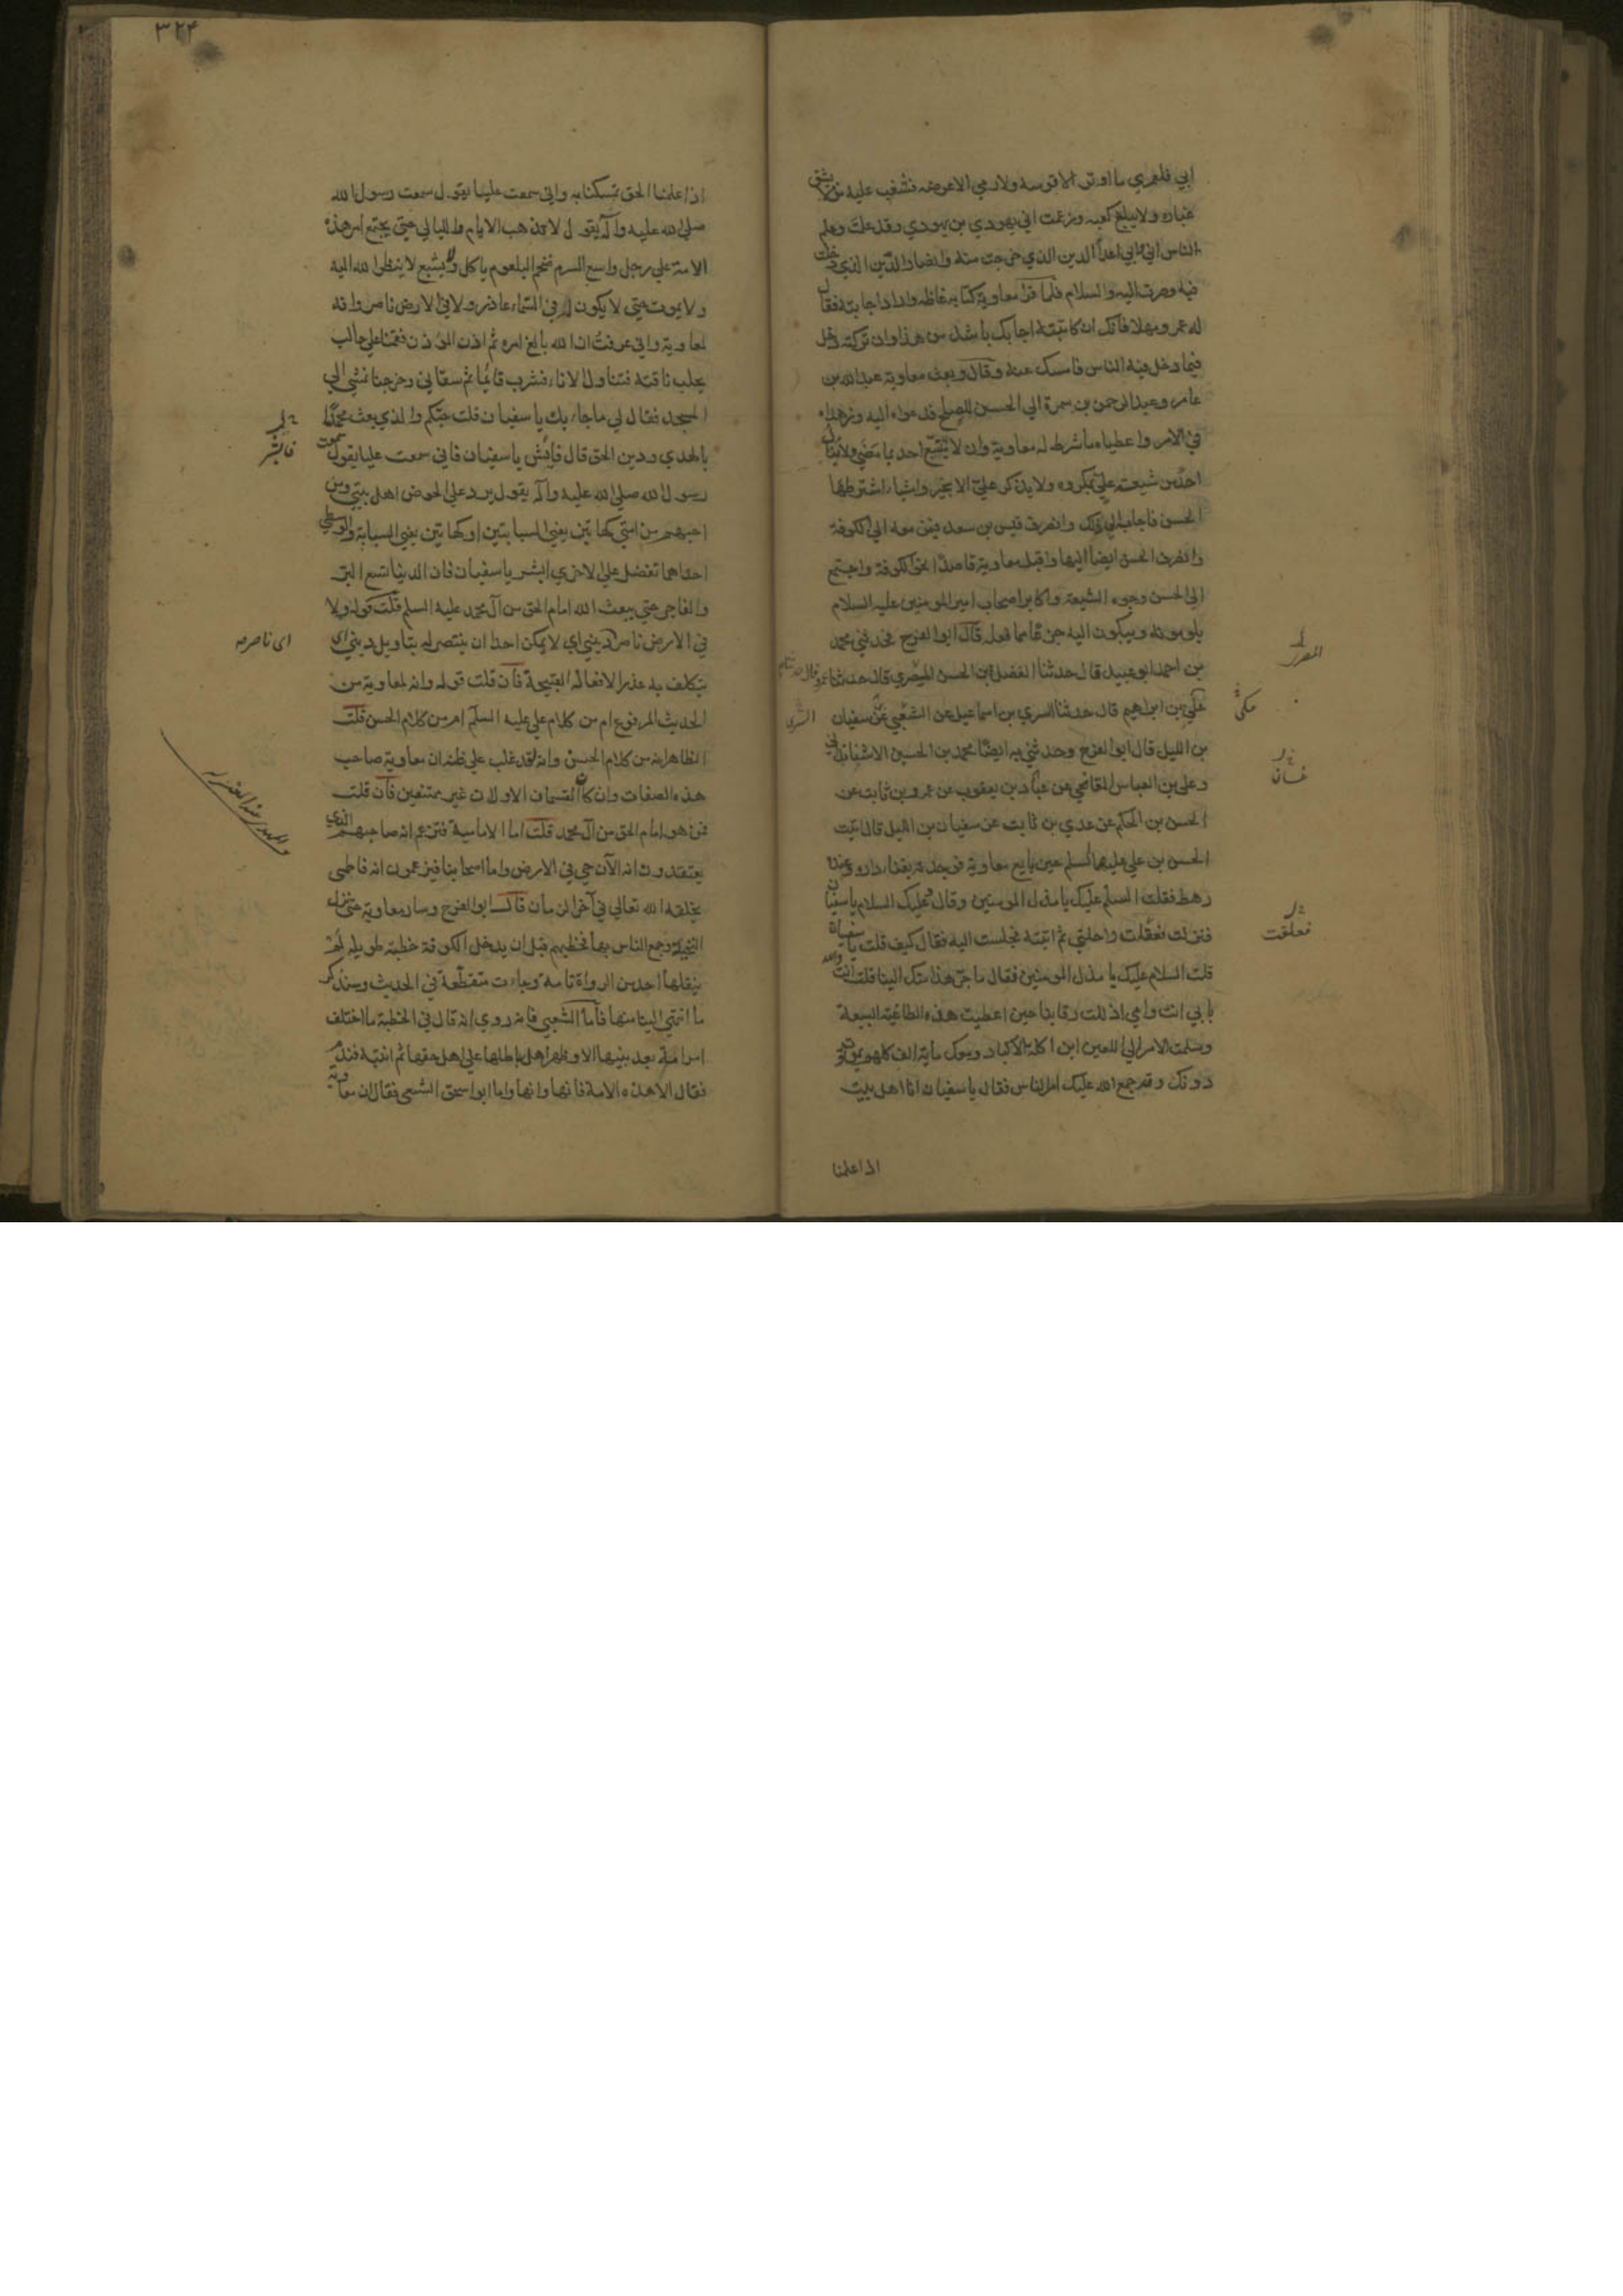 ابي فلعمري ما اوتر الا قوسه ولا رمي الا غرضه فشغب عليه من لا يشق
غباره ولا يبلغ كعبه وزعمت اني يهودي بن يهودي وقد علمت وعلم
الناس اني وابي اعداً الدين الذي خرجت منه وانصار الدين الذي دخلت
فيه وصرت اليه والسلام فلما قرا معاوية كتابه غاظه واراد اجابته فقال
له عمرو مهلا فانك ان كاتبته اجابك باشد من هذا وان تركته دخل
فيما دخل فيه الناس فامسك عنه وقال وبعث معاوية عبدالله بن
عامر وعبدالرحمن بن سمرة الي الحسن للصلح فدعواه اليه وزهداه
في الامر واعطياه ما شرط له معاوية وان لا يتبع احد بما مضي ولا ينال
احد من شيعة علي بمكروه ولا يذكر علي الا بخير واشياء اشترطها
الحسن فاجاب الي ذلك وانصرف قيس بن سعد فيمن معه الي الكوفة
وانصرف الحسن ايضا اليها واقبل معاوية قاصدا نحو الكوفة واجتمع
الي الحسن وجوه الشيعة واكابر اصحاب امير المومنين عليه السلام
يلومونه ويبكون اليه جزعا مما فعله قال ابو الفرج فحدثني محمد
بن احمد ابو عبيد قال حدثنا الفضل بن الحسن المصري قال حدثنا
مكي بن ابراهيم قال حدثنا السري بن اسماعيل عن الشعبي عن سفيان
بن الليل قال ابو الفرج وحدثني به ايضا محمد بن الحسين الاشناندانى
وعلي بن العباس المقانعي عن عباد بن يعقوب عن عمرو بن ثابت عن
الحسن بن الحكم عن عدي بن ثابت عن سفيان بن الليل قال اتيت
الحسن بن علي عليهما السلم حين بايع معاوية فوجدته بفناء داره وعنده
رهط فقلت السلم عليك يا مذل المومنين وقال وعليك السلام يا سفيان
فنزلت فعقلت راحلتي ثم اتيته فجلست اليه فقال كيف قلت يا سفيان
قلت السلام عليك يا مذل المومنين فقال ما جر هذا منك الينا قلت انت والله
بابي انت وامي اذللت رقابنا حين اعطيت هذه الطاغية البيعة
وسلمت الامر الي اللعين ابن اكلة الاكباد ومعك مأية الف كلهم يموت
دونك وقد جمع الله عليك امر الناس فقال يا سفيان انا اهل بيت
اذا علمنا
المصري
مكي
غسان
فعلقت
٣٢٤
اذا علمنا الحق تمسكنا به واني سمعت عليا يقول سمعت رسول الله
صلي الله عليه وآله يقول لا تذهب الايام والليالي حتي يجتمع امر هذه
الامة علي رجل واسع السرم ضخم البلعوم ياكل ولا يشبع لا ينظر الله اليه
ولا يموت حتي لا يكون له في السماء عاذر ولا في الارض ناصر وانه
لمعاوية واني عرفتُ ان الله بالغ امره ثم اذن الموذن فقمنا علي حالب
يحلب ناقته فتناول الاناء فشرب قايما ثم سقاني وخرجنا نمشي الي
المسجد فقال لي ما جاء بك يا سفيان قلت حبكم والذي بعث محمدا
بالهدي ودين الحق قال فابشر يا سفيان فاني سمعت عليا يقول سمعت
رسول الله صلي الله عليه وآله يقول يرد علي الحوض اهل بيتي ومن
احبهم من امتي كهاتين يعني السبابتين او كهاتين يعني السبابة والوسطي
احداهما تفضل علي الاخري ابشر يا سفيان فان الدنيا تسع البر
والفاجر حتي يبعث الله امام الحق من آل محمد عليه السلم قلت قوله ولا
في الارض ناصر ديني اي لا يمكن احدا ان ينتصر له بتاويل ديني
يتكلف به عذرا لافعاله القبيحة فأن قلت قوله وانه لمعاوية من
الحديث المرفوع ام من كلام علي عليه السلم ام من كلام الحسن قلت
الظاهر انه من كلام الحسن وانه لقد غلب علي ظنه ان معاوية صاحب
هذه الصفات وان كان القسمان الاولان غير ممتنعين فأن قلت
فمن هو امام الحق من آل محمد قلت اما الامامية فتزعم انه صاحبهم الذي
يعتقدون انه الآن حي في الارض واما اصحابنا فيزعمون انه فاطمى
يخلقه الله تعالي في آخر الزمان قال ابو الفرج وسار معاوية حتي نزل
النخيلة وجمع الناس بها فخطبهم قبل ان يدخل الكوفة خطبة طويلة لم
ينقلها احد من الرواة تامة وجاءت متقطعة في الحديث وسنذكر
ما انتهي الينا منها فأما الشعبي فانه روي انه قال في الخطبة ما اختلف
امر امة بعد نبيها الا وظهر اهل باطلها علي اهل حقها ثم انتبه فندم
فقال الا هذه الامة فانها وانها واما ابو اسحق السبيعى فقال ان معاوية
فابشر
اى ناصر